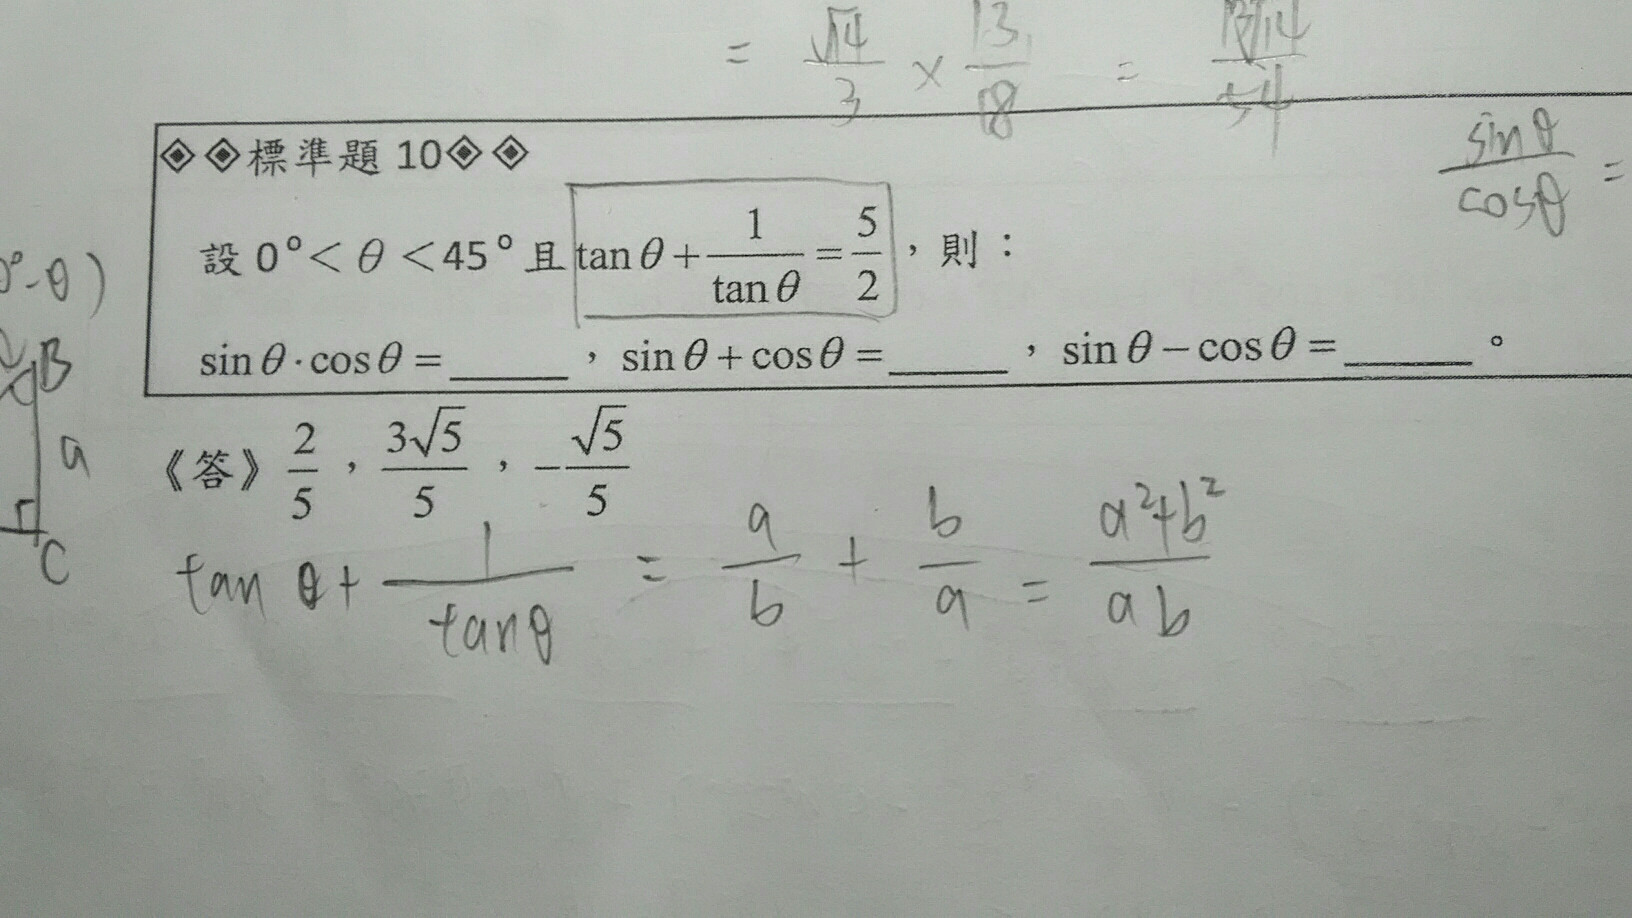 = √14/3 × 13/18 = 13√14/54
◈◈標準題 10◈◈
sinθ/cosθ =
設 0°< θ <45° 且 tanθ + 1/tanθ = 5/2，則：
-θ)
sinθ·cosθ = _____，sinθ+cosθ = _____，sinθ−cosθ = _____。
B
a
C
《答》2/5，3√5/5，−√5/5
tan θ + 1/tanθ = a/b + b/a = a²+b²/ab